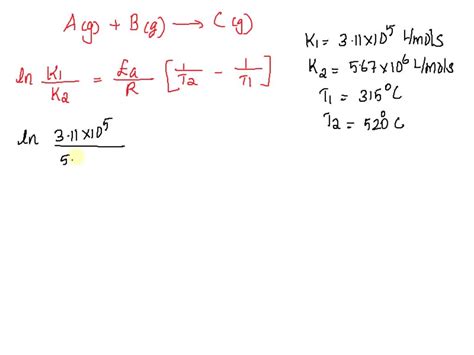 A(g) + B(g) → C(g)
ln K1/K2 = Ea/R [1/T2 - 1/T1]
ln 3.11×10^5 / 5.
K1 = 3.11×10^5 L/mols
K2 = 5.67×10^6 L/mols
T1 = 315°C
T2 = 520°C